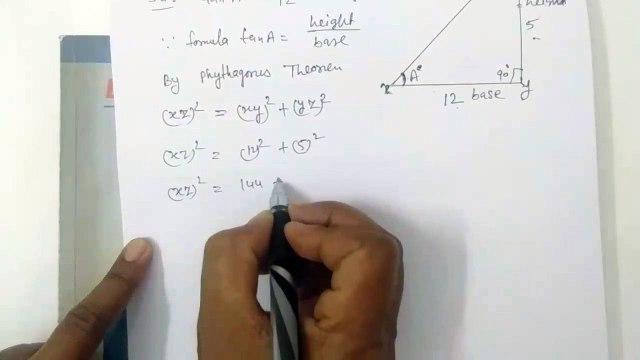 12
height
∵ formula tanA = height/base
By Phythagorus Theorem
(xz)² = (xy)² + (yz)²
(xz)² = (12)² + (5)²
(xz)² = 144
height
5
A°
90°
x
y
12 base